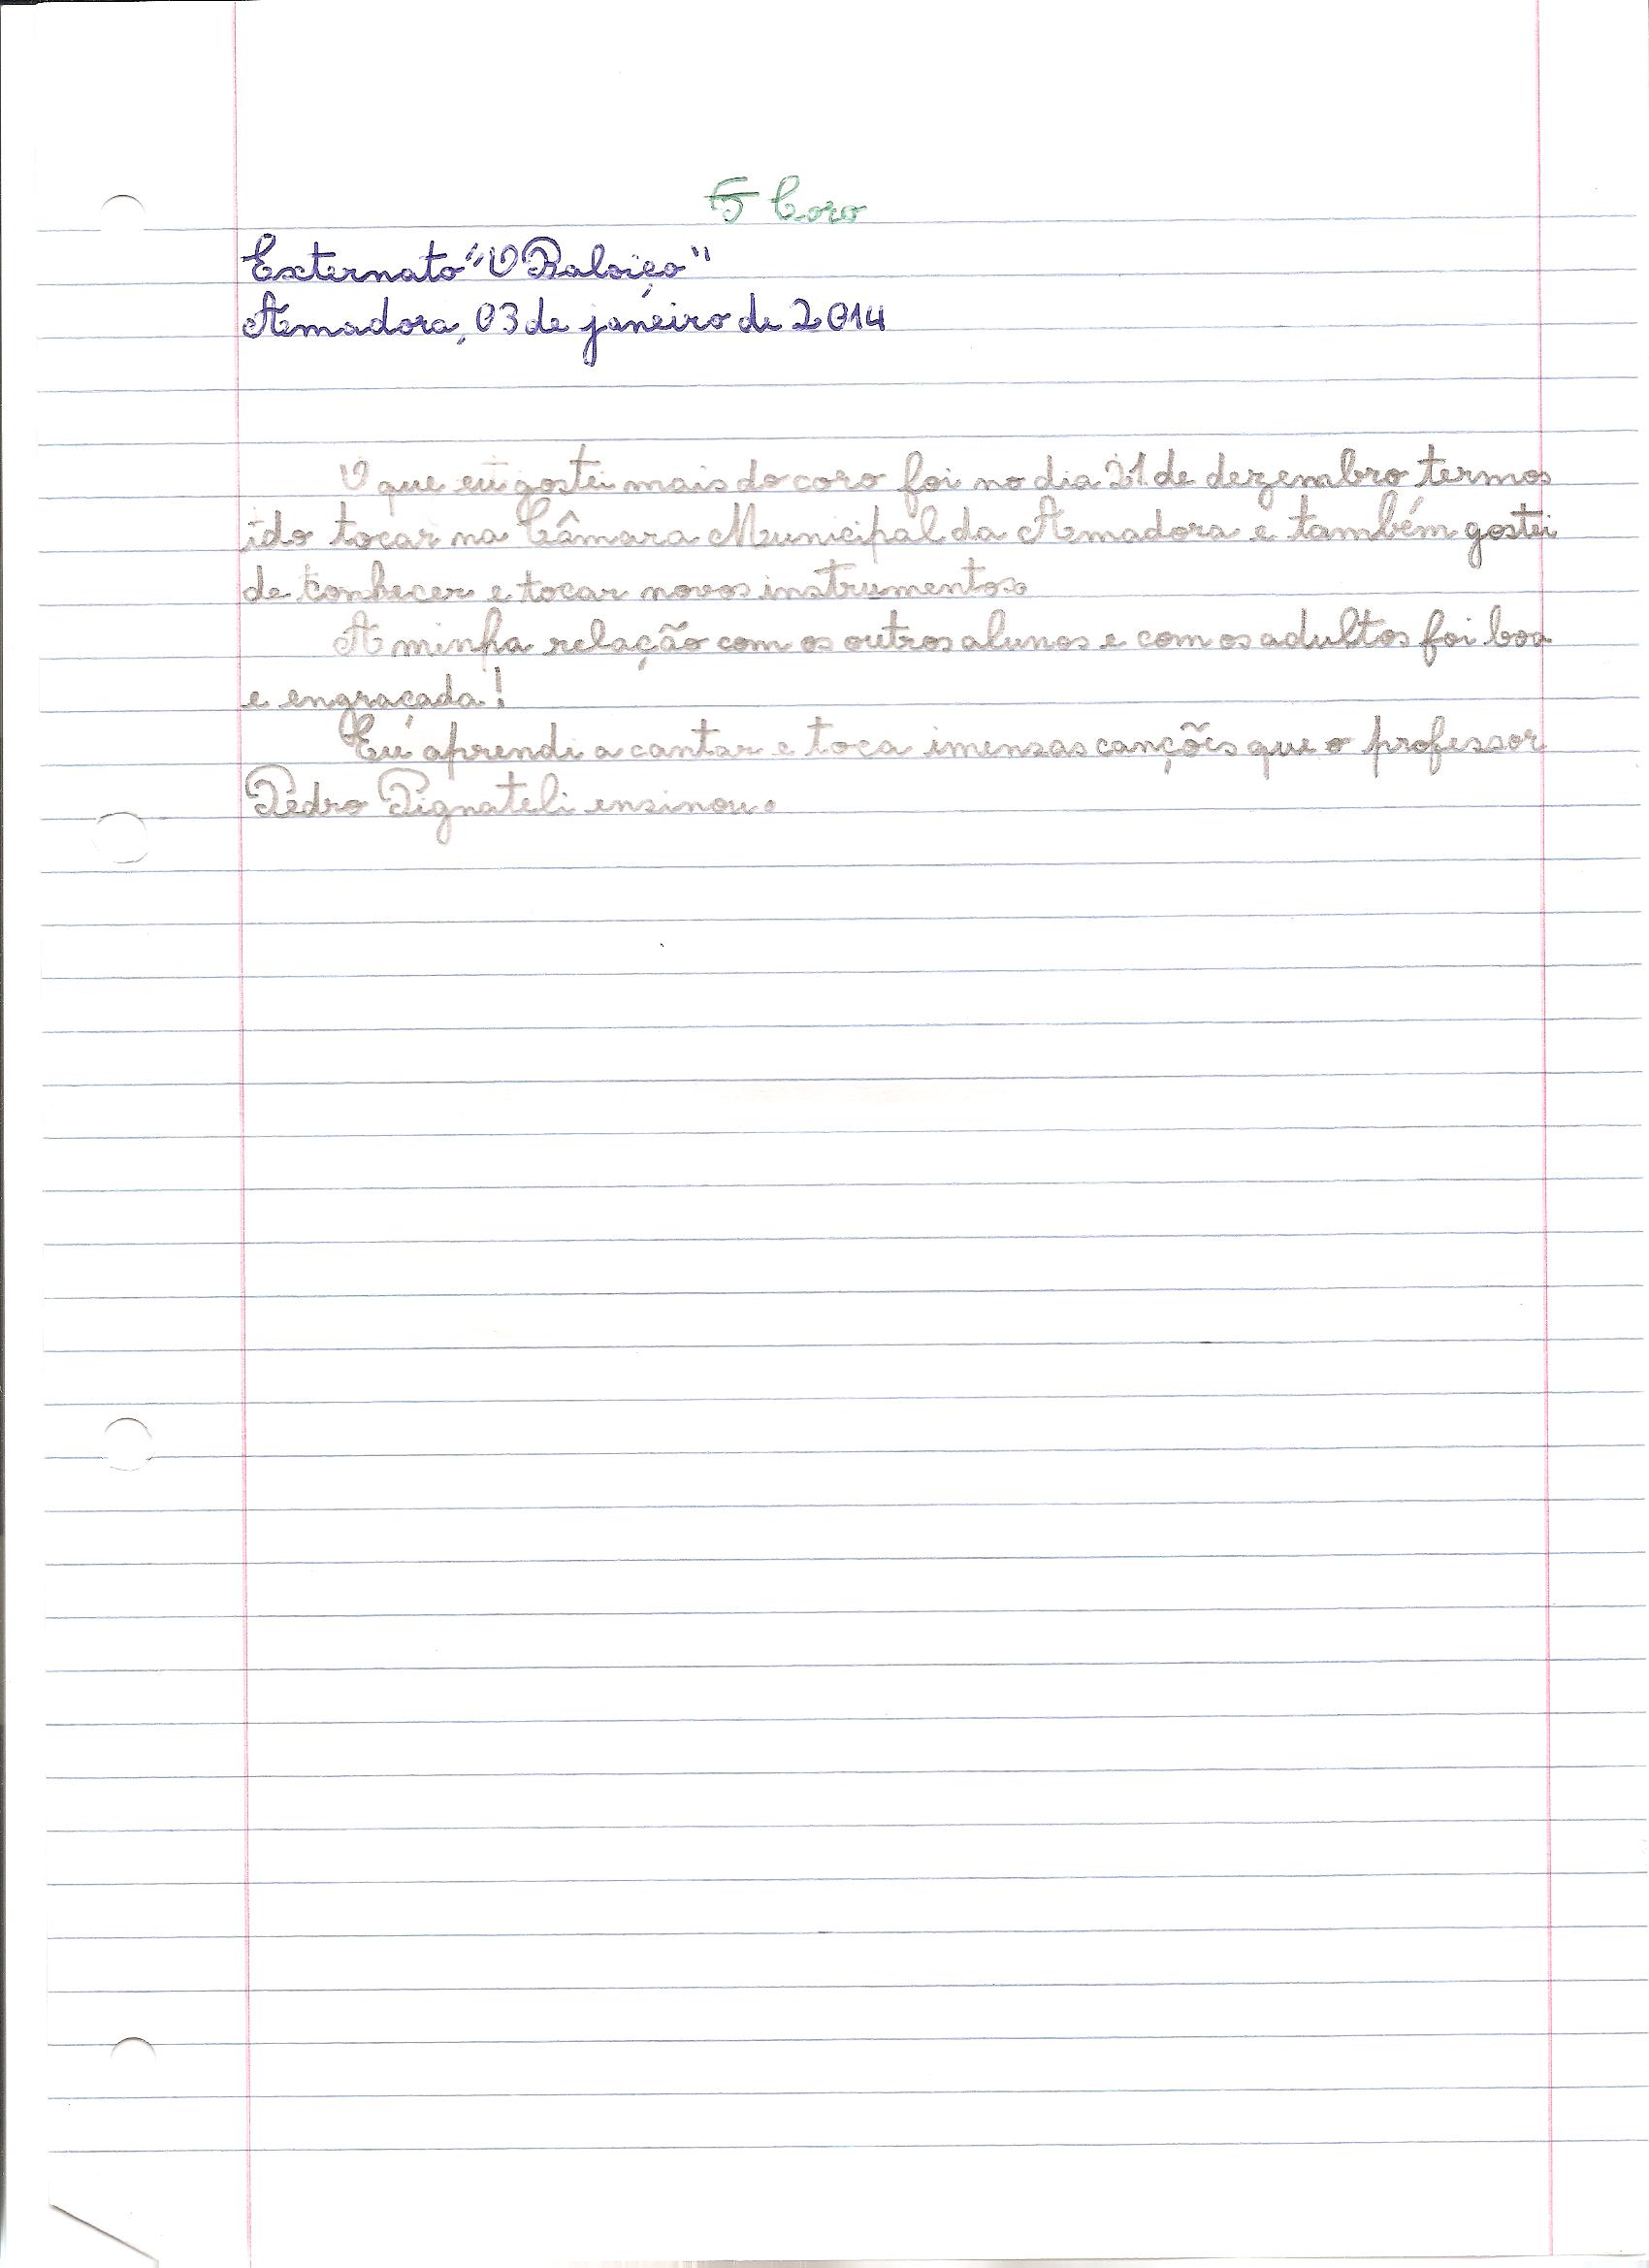 5 Coro
Externato "O Baloiço"
Amadora, 03 de janeiro de 2014
O que eu gostei mais do coro foi no dia 21 de dezembro termos
ido tocar na Câmara Municipal da Amadora e também gostei
de conhecer e tocar novos instrumentos.
A minha relação com os outros alunos e com os adultos foi boa
e engraçada!
Eu aprendi a cantar e toca imensas canções que o professor
Pedro Pignateli ensinou.